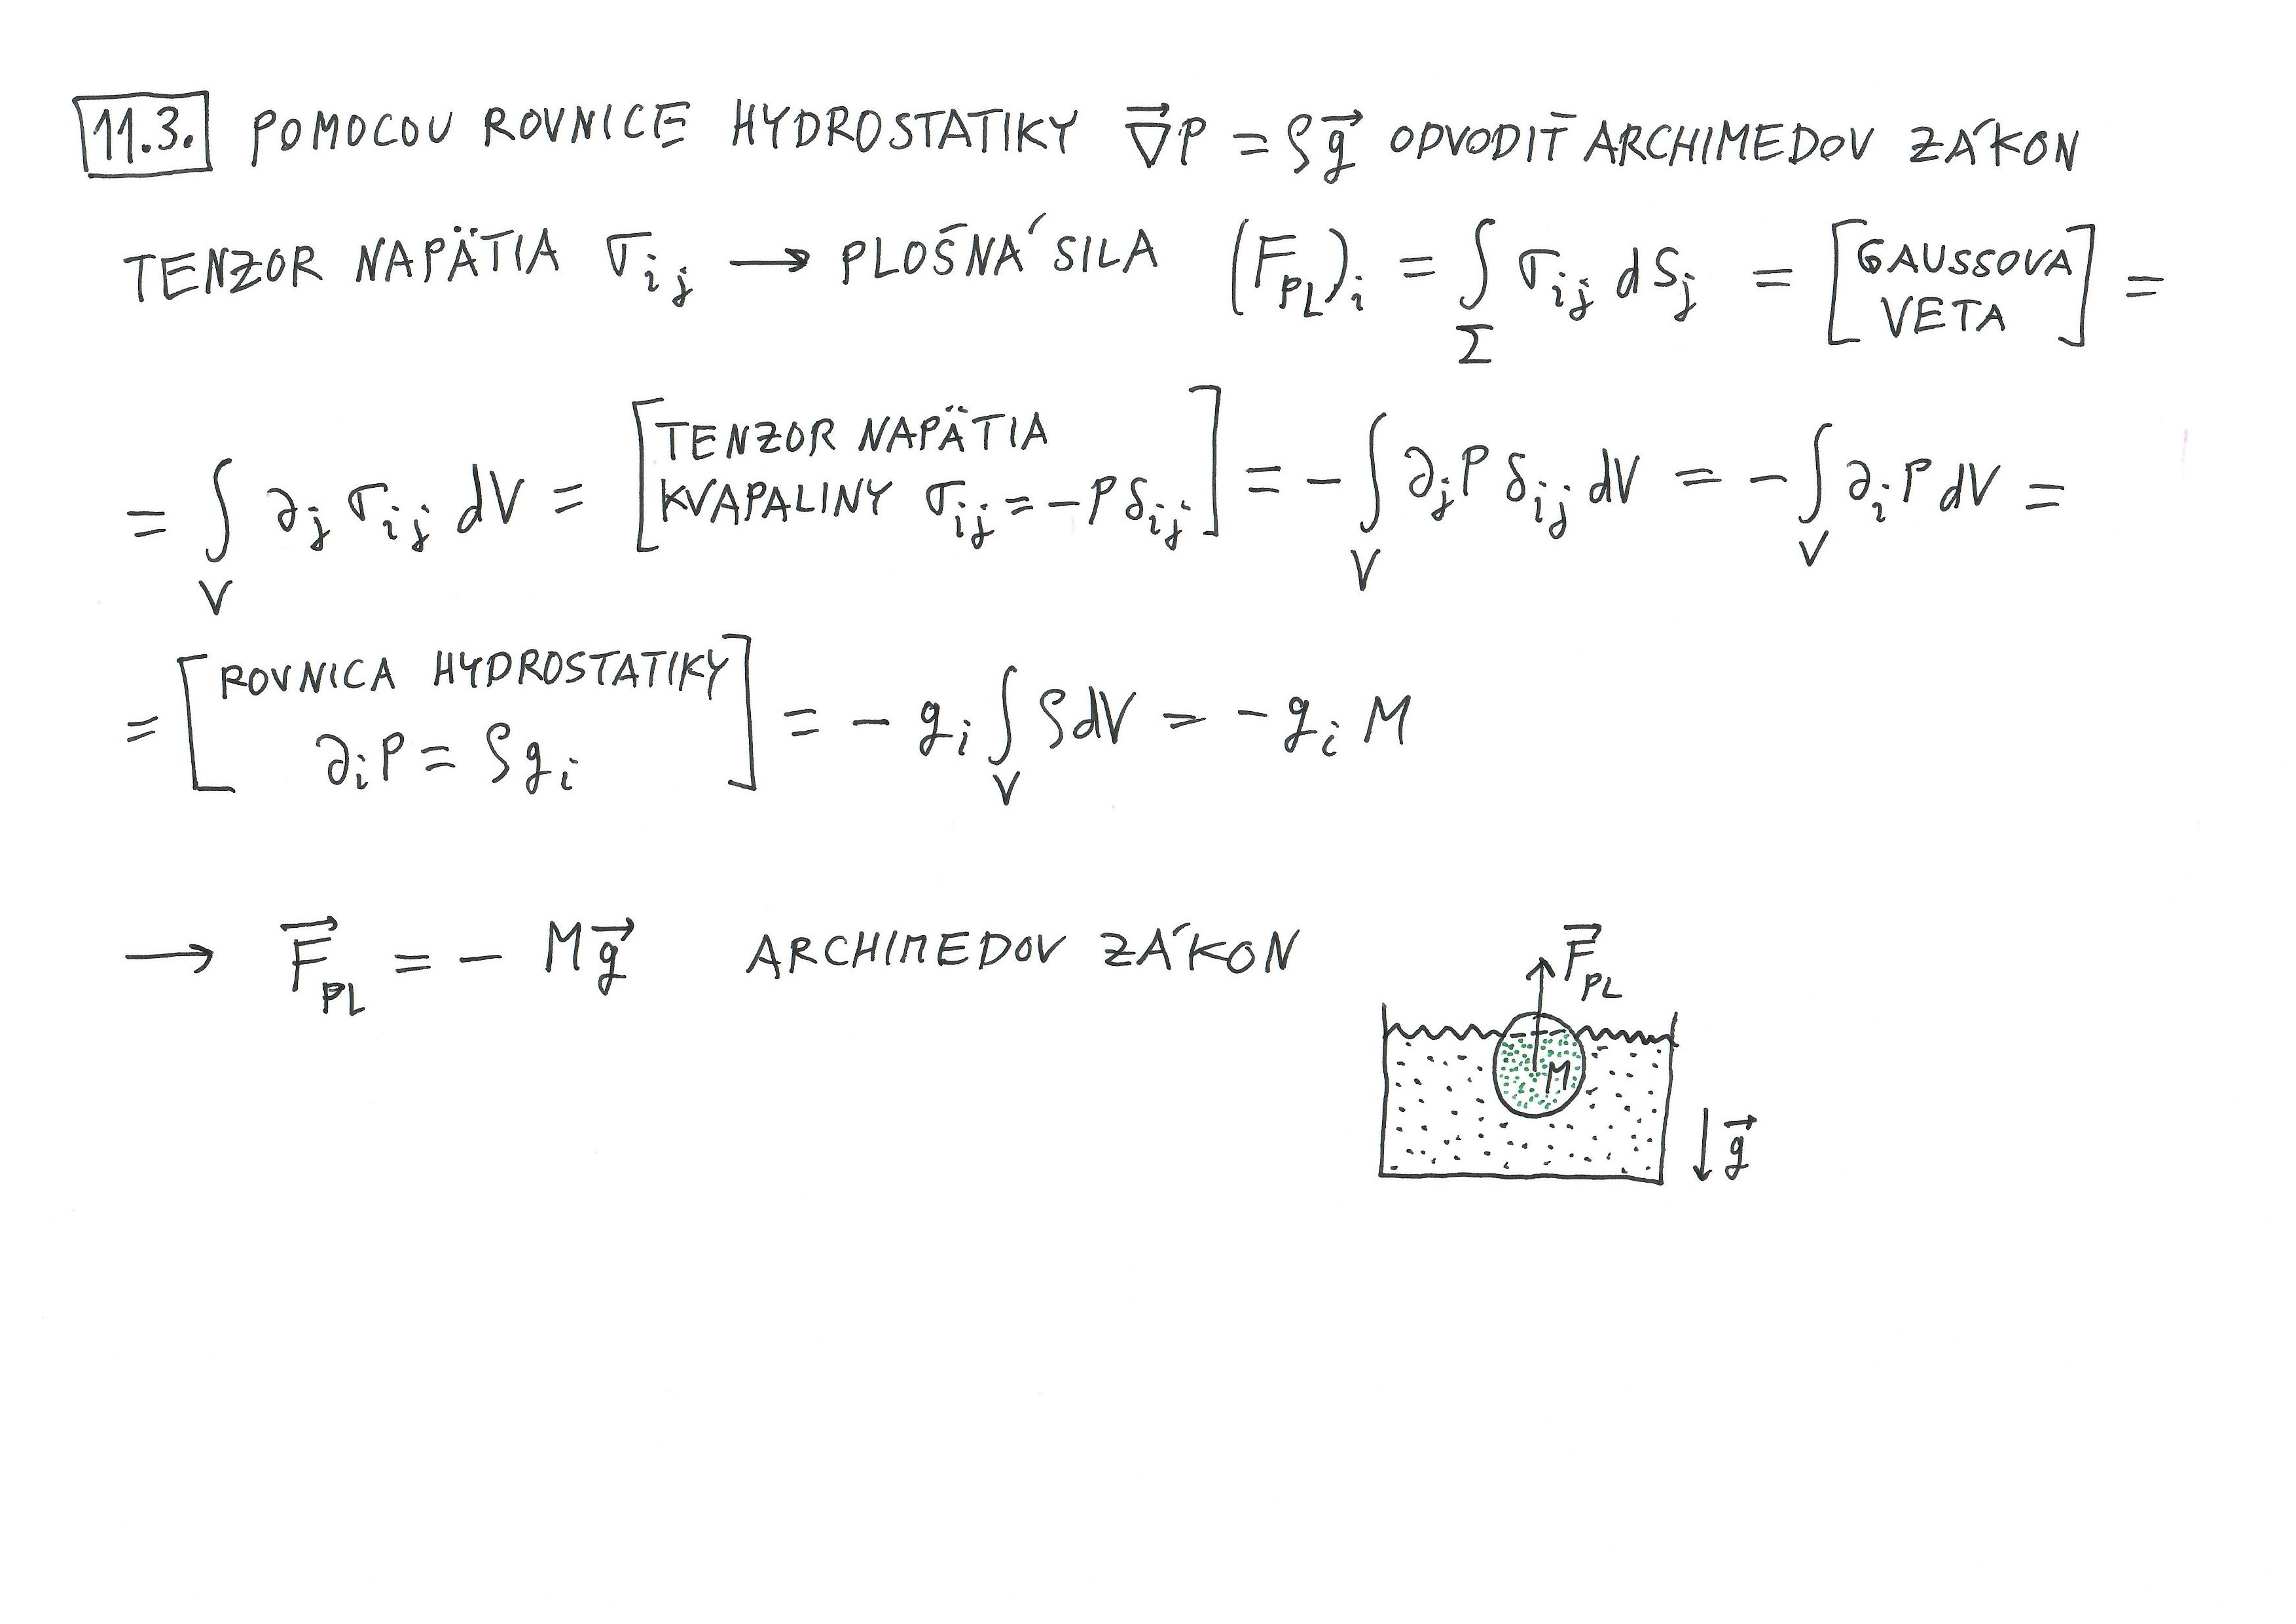 11.3. POMOCOU ROVNICE HYDROSTATIKY ∇⃗P = ρg⃗ ODVODIŤ ARCHIMEDOV ZÁKON
TENZOR NAPÄTIA σ_ij → PLOŠNÁ SILA (F_PL)_i = ∫_Σ σ_ij dS_j = [GAUSSOVA VETA] =
= ∫_V ∂_j σ_ij dV = [TENZOR NAPÄTIA KVAPALINY σ_ij = -P δ_ij] = - ∫_V ∂_j P δ_ij dV = - ∫_V ∂_i P dV =
= [ROVNICA HYDROSTATIKY ∂_i P = ρ g_i] = - g_i ∫_V ρ dV = - g_i M
→ F⃗_PL = - M g⃗ ARCHIMEDOV ZÁKON
F⃗_PL
M
g⃗